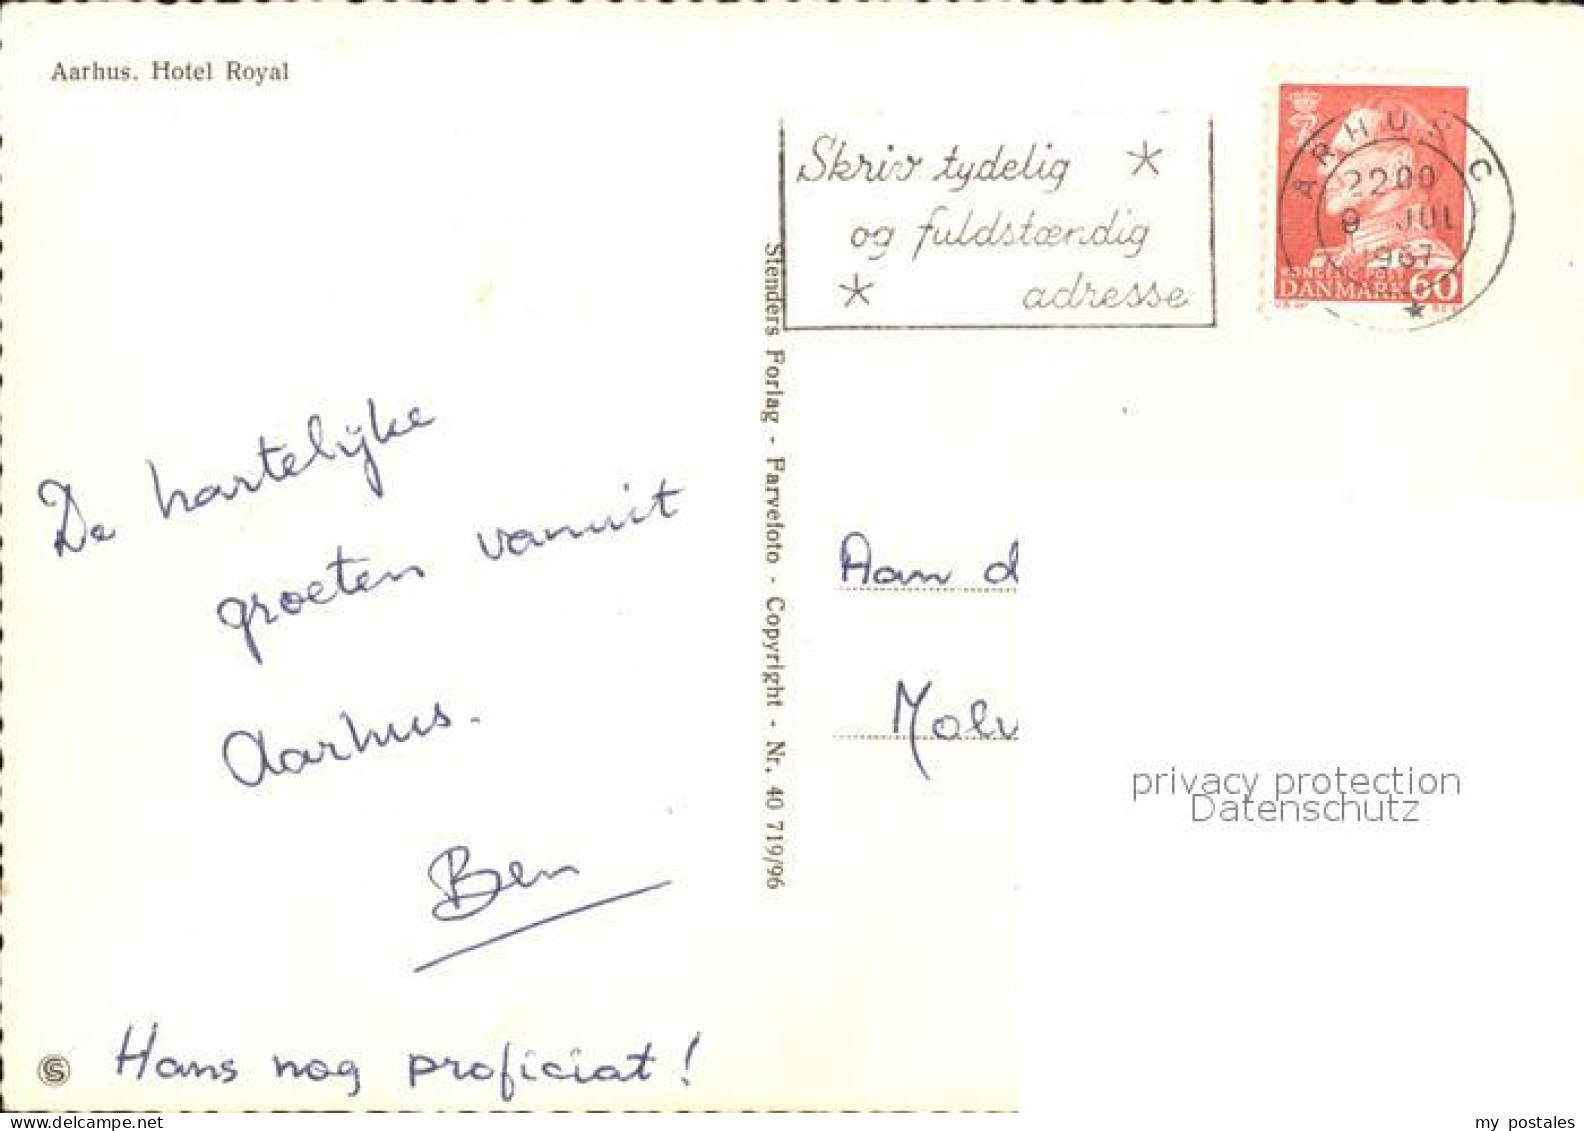 Aarhus. Hotel Royal
Skriv tydelig
og fuldstændig
adresse
ARHUS C
2200
9 JUL
1967
KONGELIG POST
DANMARK 60
De hartelijke
groeten vanuit
Aarhus.
Ben
Hans nog proficiat!
Stenders Forlag - Farvefoto - Copyright - Nr. 40 719/96
Aan d
Molv
privacy protection
Datenschutz
my postales